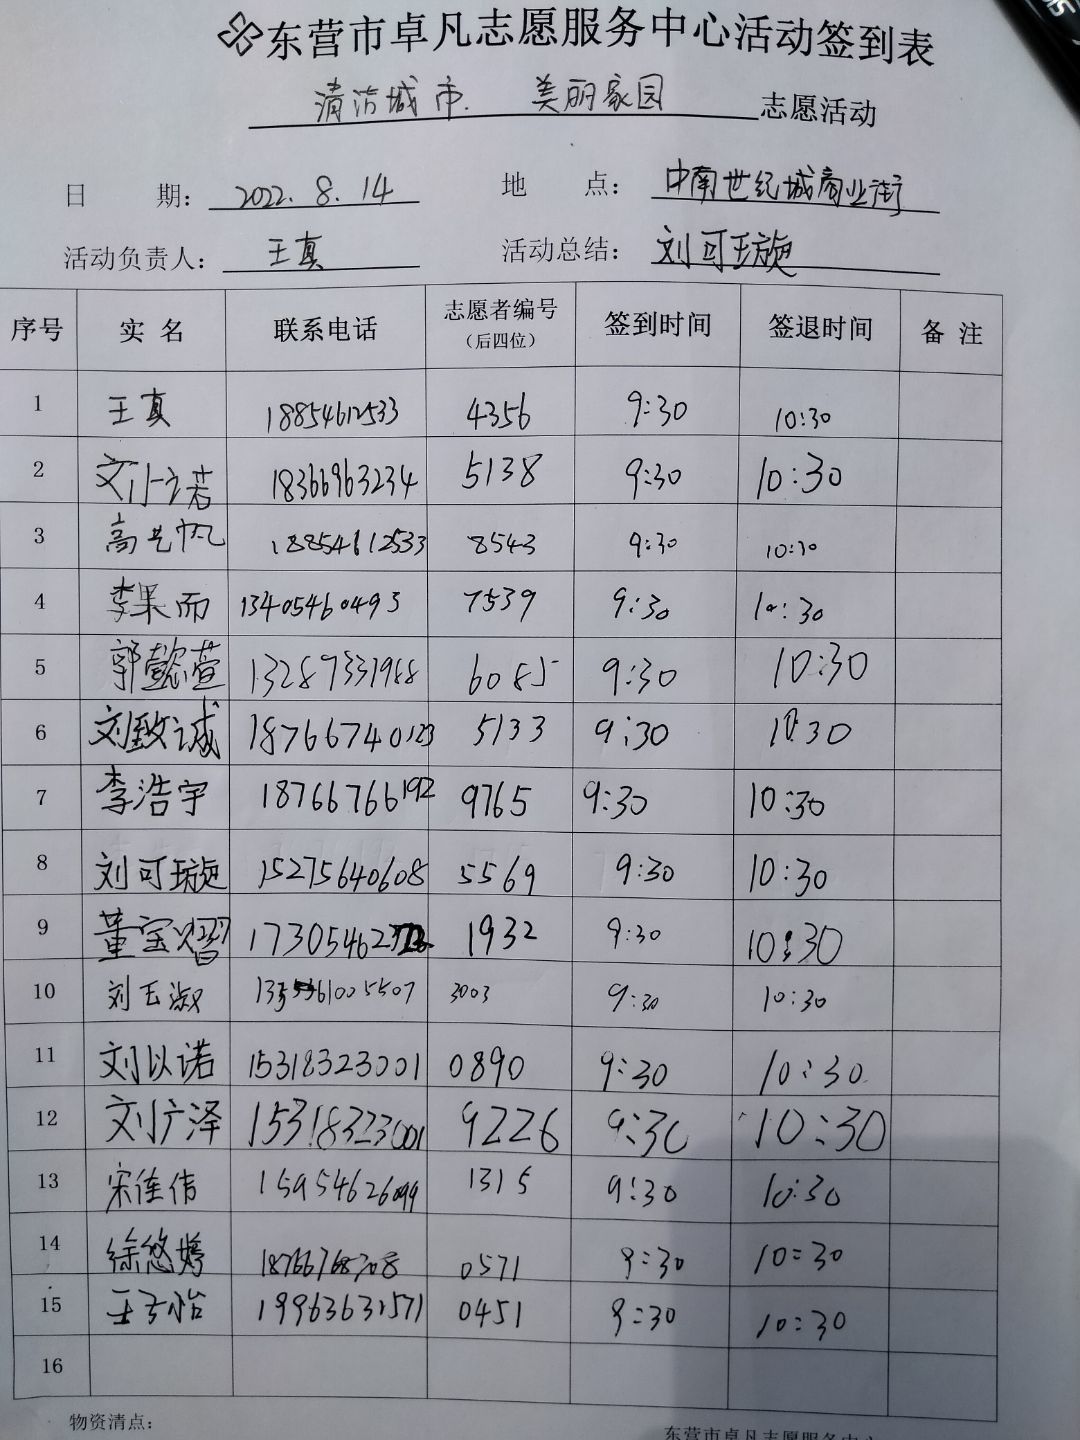 东营市卓凡志愿服务中心活动签到表
清洁城市. 美丽家园 志愿活动
日 期: 2022.8.14 地 点: 中南世纪城商业街
活动负责人: 王真 活动总结: 刘可璇
序号 实名 联系电话 志愿者编号(后四位) 签到时间 签退时间 备注
1 王真 18854612533 4356 9:30 10:30
2 18366963234 5138 9:30 10:30
3 18854612533 8543 9:30 10:30
4 李果而 13405460493 7539 9:30 10:30
5 郭懿萱 13287331988 6085 9:30 10:30
6 刘致诚 18766740123 5133 9:30 10:30
7 李浩宇 18766766192 9765 9:30 10:30
8 刘可璇 15275640608 5569 9:30 10:30
9 董宝熠 1932 9:30 10:30
10 刘玉淑 3003 9:30 10:30
11 刘以诺 15318323001 0890 9:30 10:30
12 刘广泽 15318323001 9226 9:30 10:30
13 宋佳倩 15954626099 1315 9:30 10:30
14 徐悠婷 18766768708 0571 9:30 10:30
15 王子怡 19963631571 0451 9:30 10:30
16
物资清点:
东营市卓凡志愿服务中心